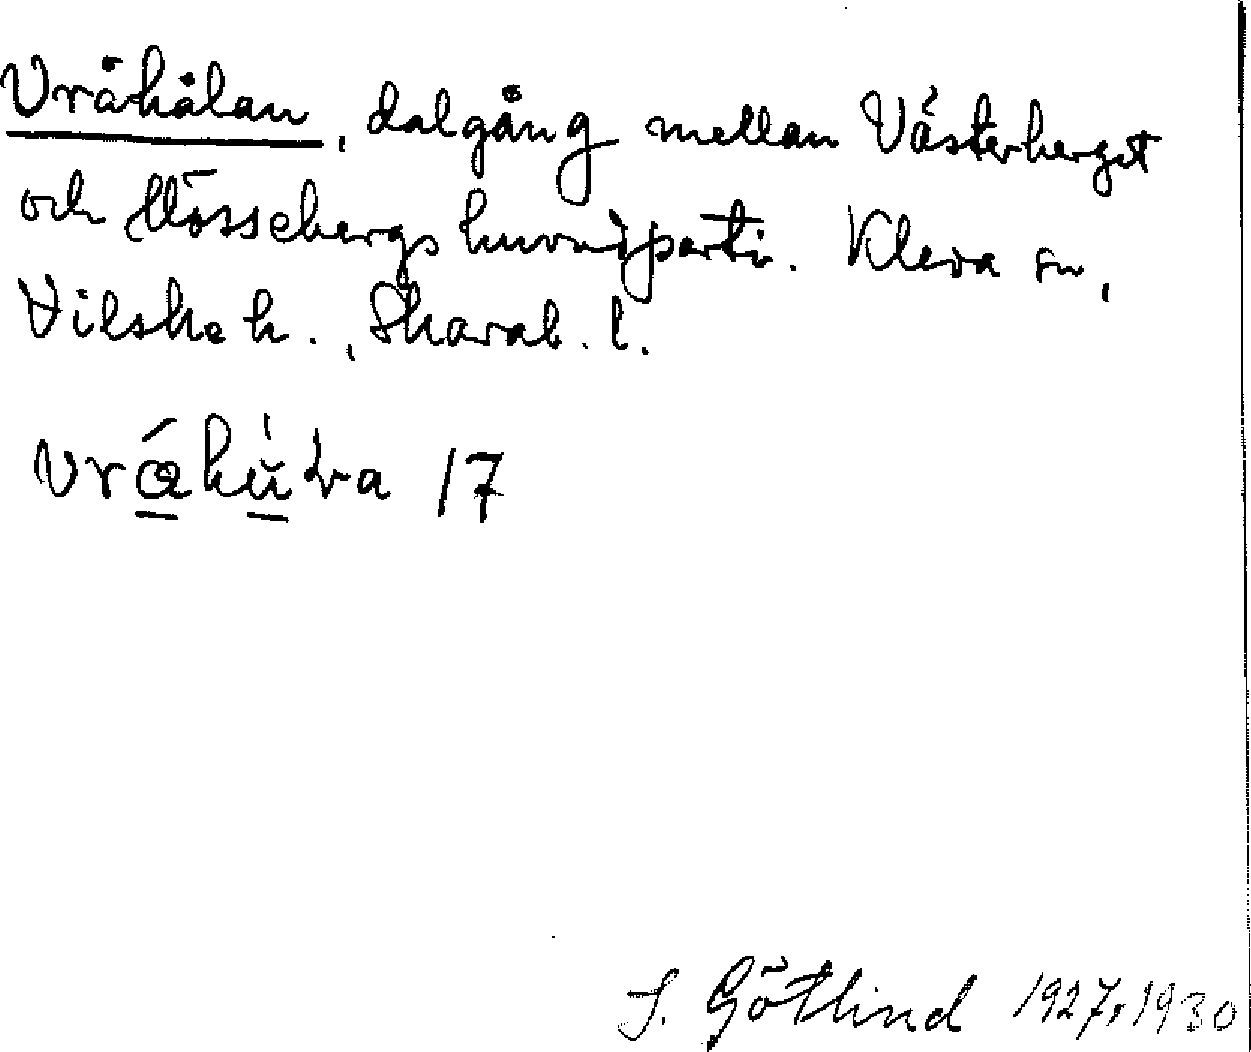 Vråhålan, dalgång mellan Västerberget
och Mössebergs huvudparti. Kleva sn,
Vilske h., Skarab. l.
17
J. Götlind 1927, 1930